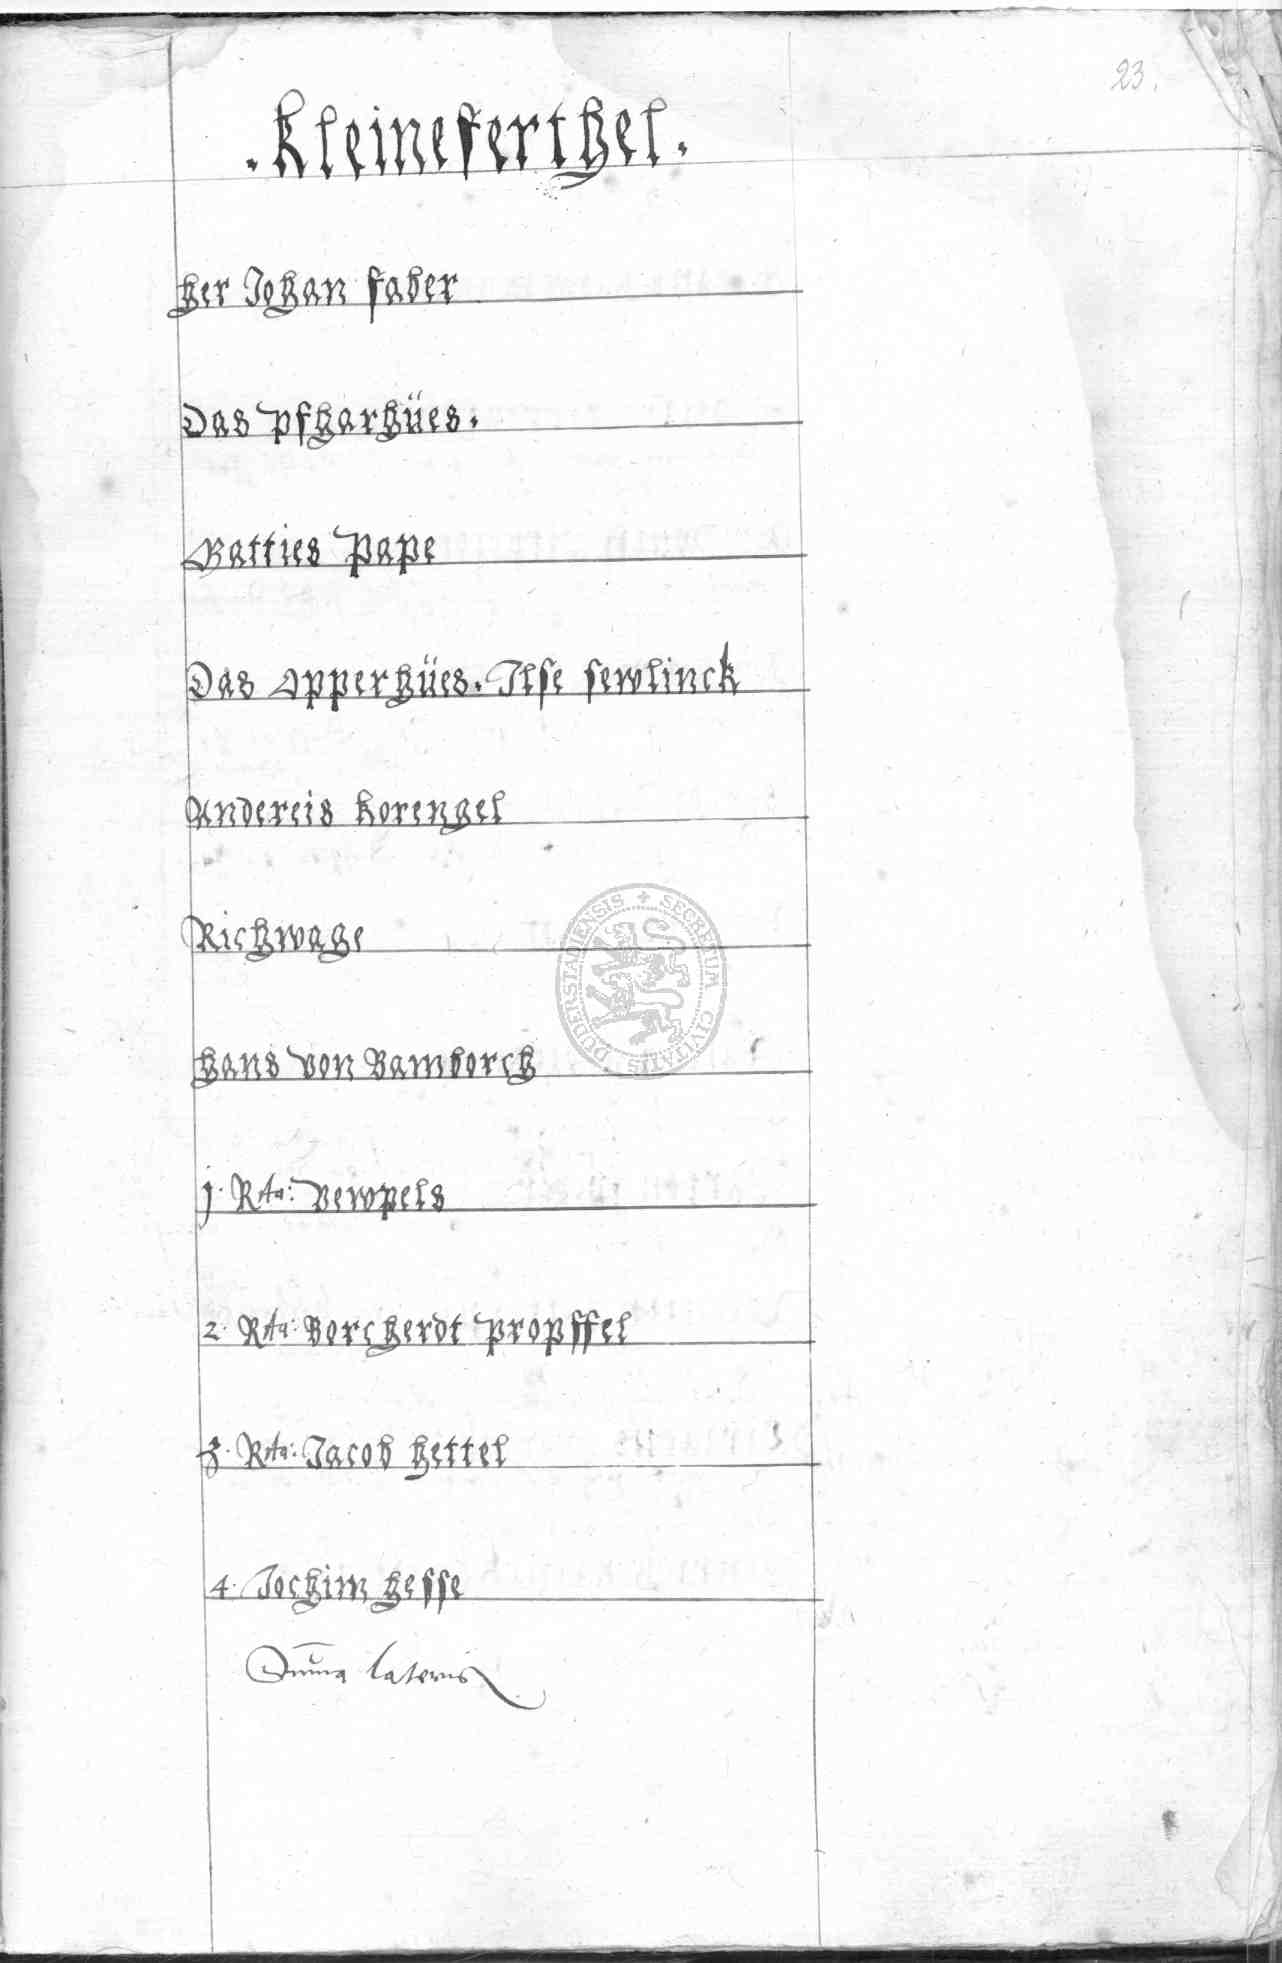 23.
. Kleineferthel .
her Johan faber
Das pfharhües.
Matties Pape
Das Opperhües. Ilse sewlinck
Andereis korengel
Richwage
hans von Bamborch
1. Rta: vewpels
2. Rta: Borcherdt propffel
3. Rta: Jacob hettel
4. Jochim hesse
Suma lateris
SECRETUM CIVITATIS DUDERSTADIENSIS